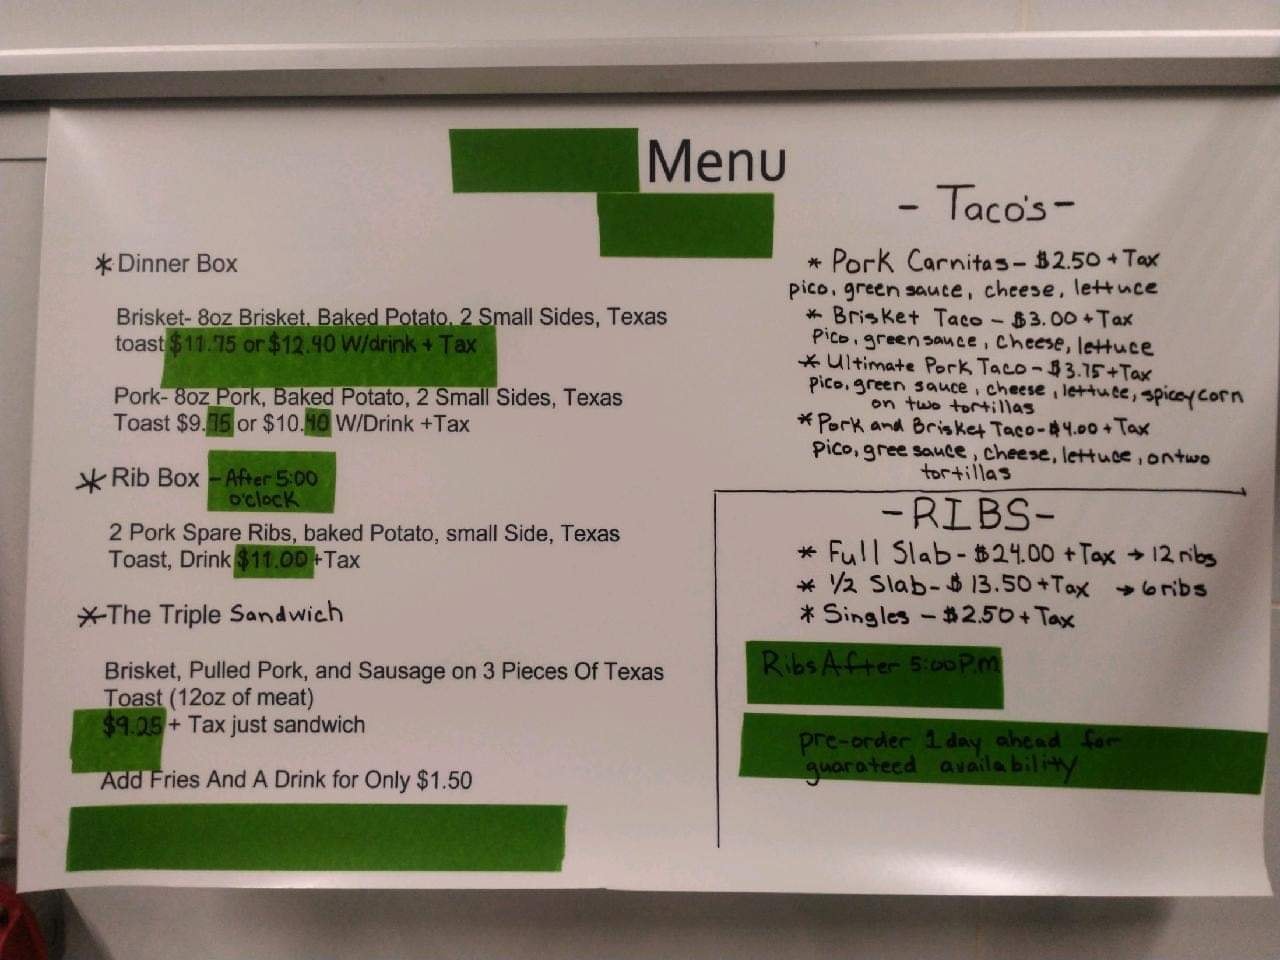 Menu
* Dinner Box
Brisket- 8oz Brisket, Baked Potato, 2 Small Sides, Texas
toast $11.75 or $12.40 W/drink + Tax
Pork- 8oz Pork, Baked Potato, 2 Small Sides, Texas
Toast $9.75 or $10.40 W/Drink +Tax
* Rib Box - After 5:00
o'clock
2 Pork Spare Ribs, baked Potato, small Side, Texas
Toast, Drink $11.00 +Tax
* The Triple Sandwich
Brisket, Pulled Pork, and Sausage on 3 Pieces Of Texas
Toast (12oz of meat)
$9.25 + Tax just sandwich
Add Fries And A Drink for Only $1.50
- Taco's -
* Pork Carnitas - $2.50 + Tax
pico, green sauce, cheese, lettuce
* Brisket Taco - $3.00 + Tax
Pico, green sauce, cheese, lettuce
* Ultimate Pork Taco - $3.75 + Tax
pico, green sauce, cheese, lettuce, spicey corn
on two tortillas
* Pork and Brisket Taco - $4.00 + Tax
pico, gree sauce, cheese, lettuce, on two
tortillas
- RIBS -
* Full Slab - $24.00 + Tax → 12 ribs
* 1/2 Slab - $13.50 + Tax → 6 ribs
* Singles - $2.50 + Tax
Ribs After 5:00 P.m
pre-order 1 day ahead for
guarateed availability